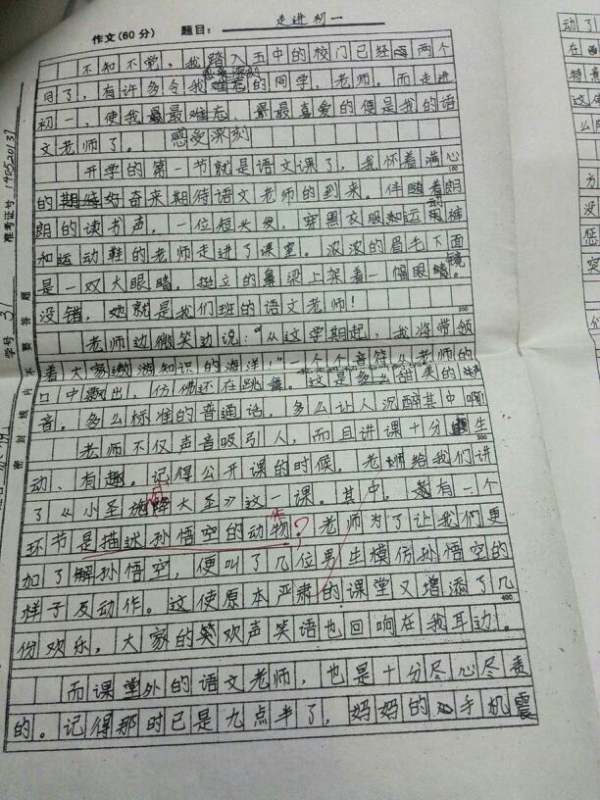 走进初一
作文(60分) 题目:
不知不觉,我踏入五中的校门已经两个
月了,有许多令我的同学,老师。而走进
初一,使我最最难忘、最最喜爱的便是我的语
文老师了。 感受深刻
开学的第一节就是语文课了,我怀着满心
的好奇来期待语文老师的到来。伴随着朗
朗的读书声,一位短头发,穿黑衣服和运动裤
和运动鞋的老师走进了课室。浓浓的眉毛下面
是一双大眼睛,挺立的鼻梁上架着一幅眼镜。
没错,她就是我们班的语文老师!
老师边微笑边说:“从这学期起,我将带领
着大家遨游知识的海洋!”一个个音符从老师的
口中飘出,仿佛还在跳舞。这是多么甜美的
音。多么标准的普通话,多么让人沉醉其中啊!
老师不仅声音吸引人,而且讲课十分生
动、有趣。记得公开课的时候。老师给我们讲
了《小圣施降大圣》这一课。其中,有一个
环节是描述孙悟空的动物?老师为了让我们更
加了解孙悟空,便叫了几位男生模仿孙悟空的
样子及动作。这使原本严肃的课堂又增添了几
份欢乐,大家的笑欢声笑语也回响在我耳边。
而课堂外的语文老师,也是十分尽心尽责
的。记得那时已是九点半了,妈妈的手机震
准考证号:
学号 31
密封线内不要答题
动了
在
特意
这
么
方
没
您
突